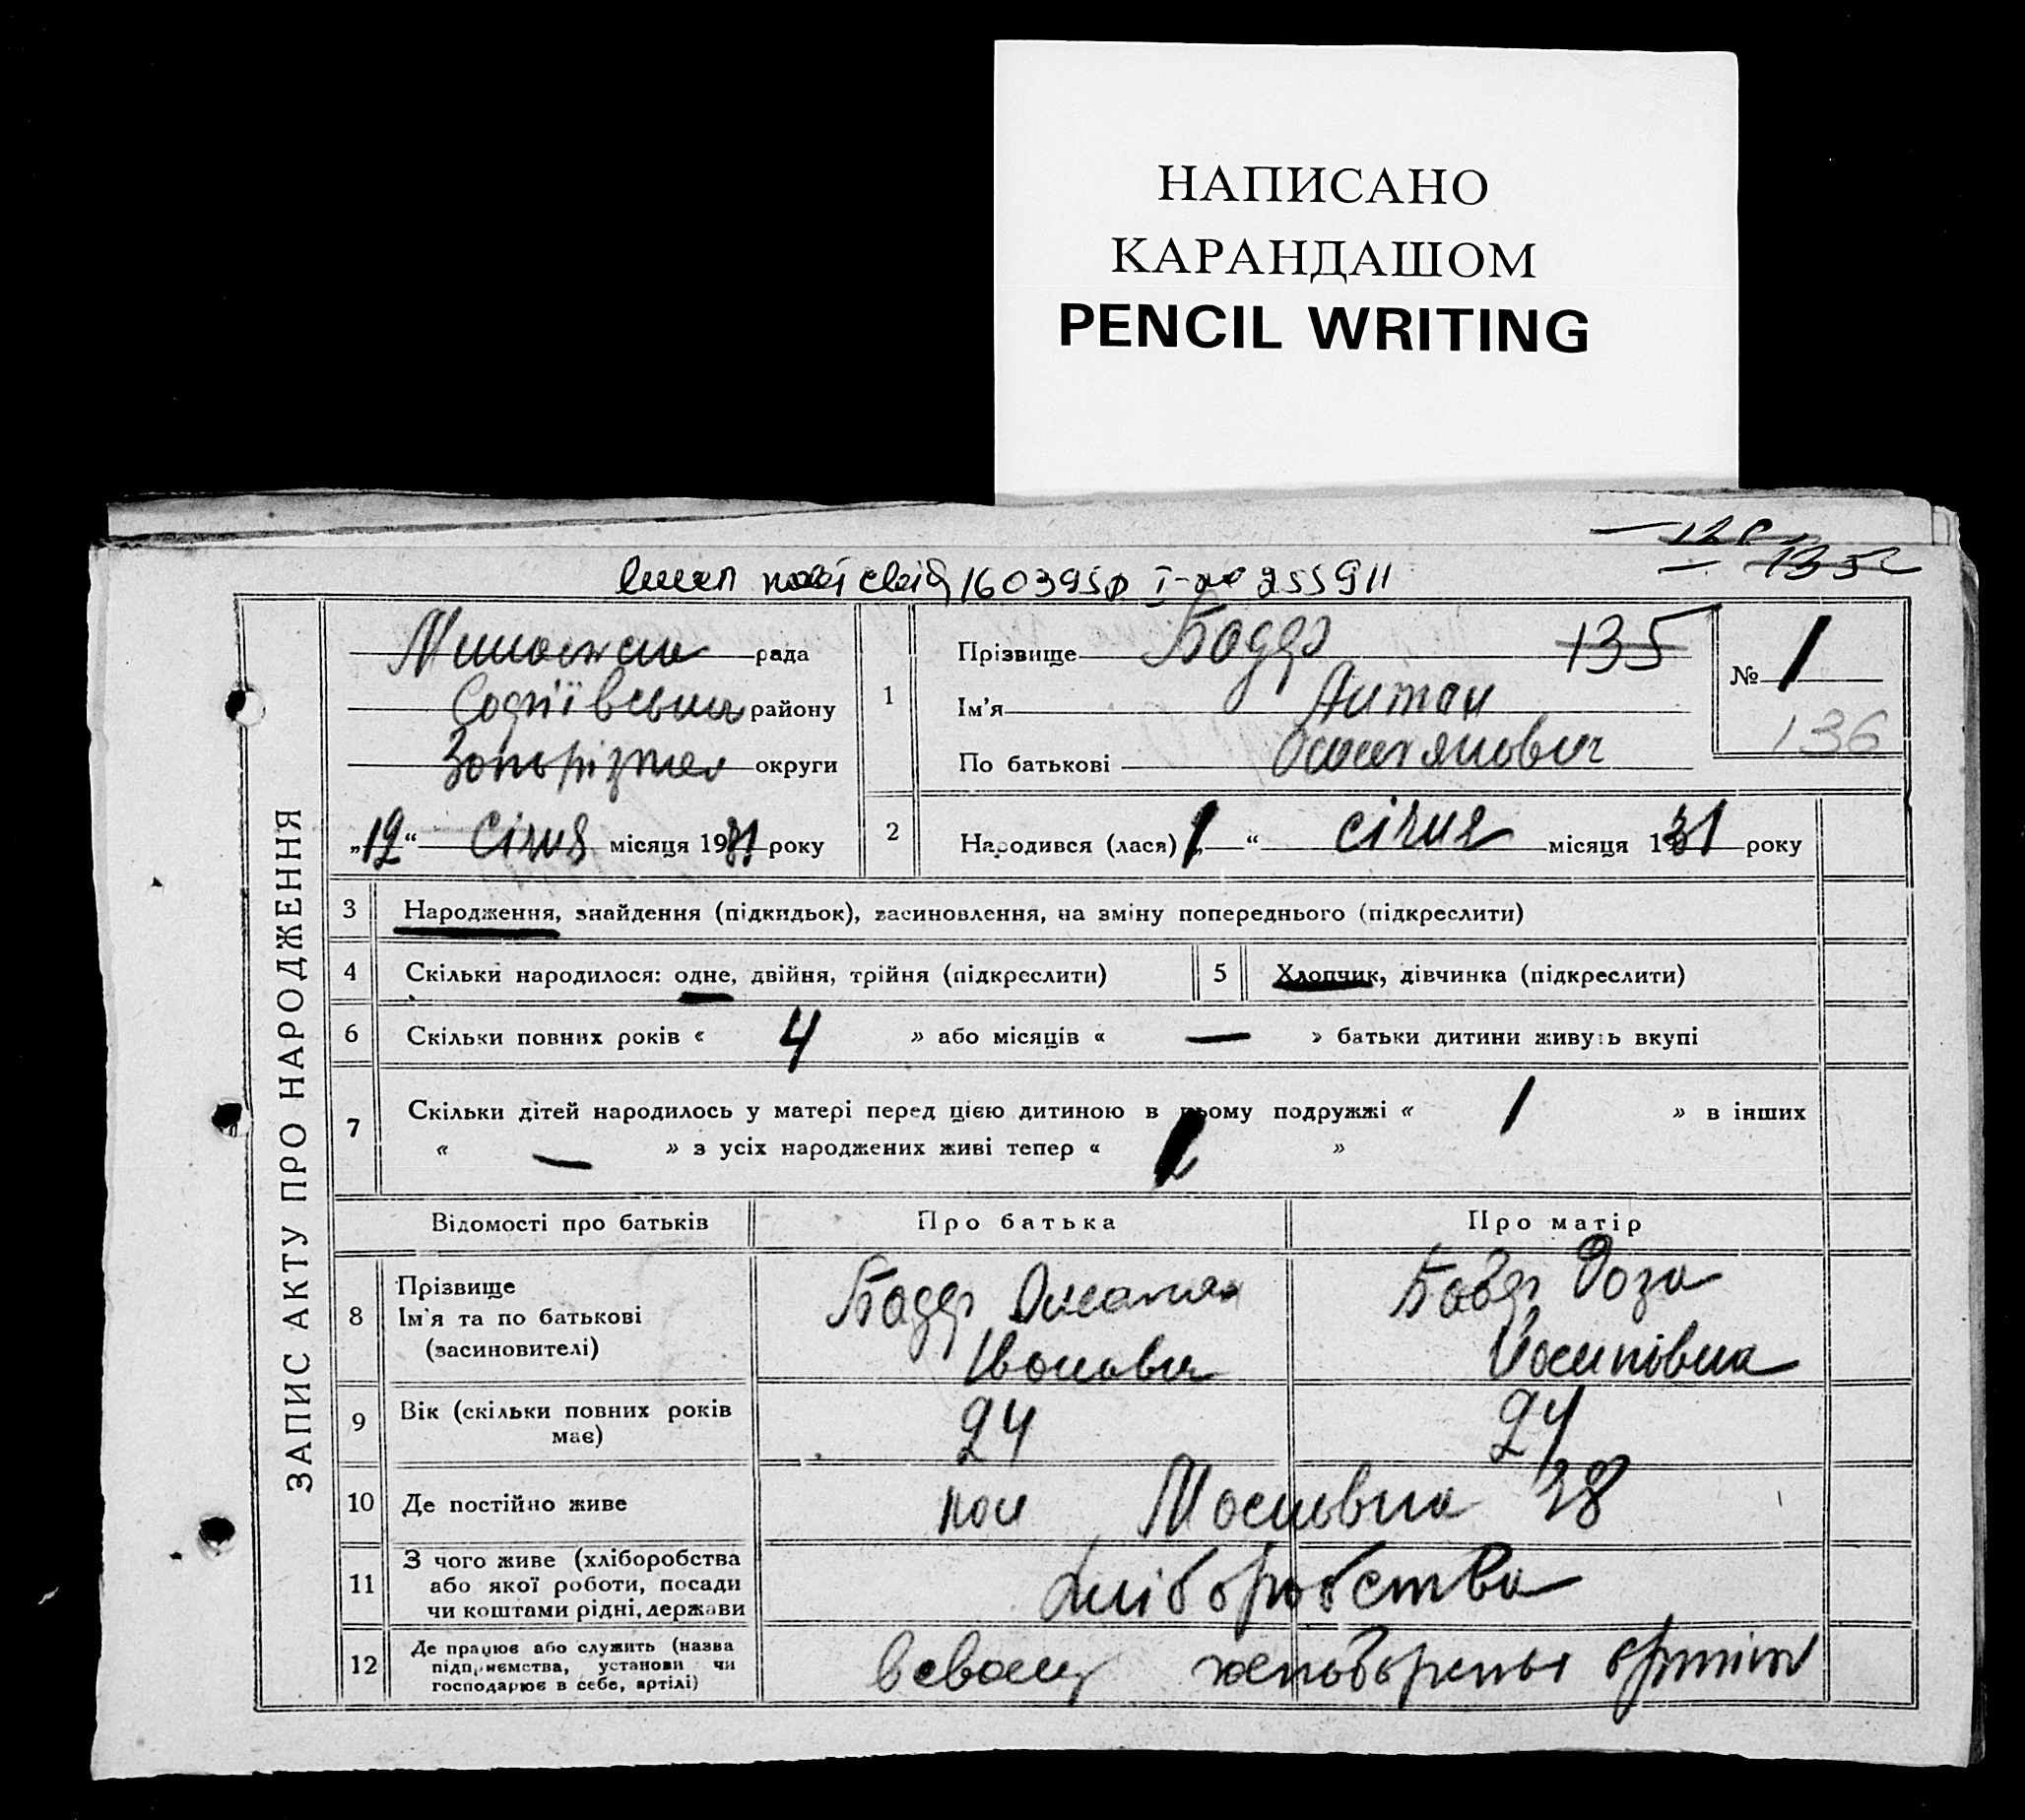 НАПИСАНО
КАРАНДАШОМ
PENCIL WRITING
128
135
1603950 I-
255911
ЗАПИС АКТУ ПРО НАРОДЖЕННЯ
рада
Софіївська району
округи
„12“ Січня місяця 1931 року
1 Прізвище 135
Ім'я Антон
По батькові
№ 1
136
2 Народився (лася) „1“ січня місяця 1931 року
3 Народження, знайдення (підкидьок), засиновлення, на зміну попереднього (підкреслити)
4 Скільки народилося: одне, двійня, трійня (підкреслити) 5 Хлопчик, дівчинка (підкреслити)
6 Скільки повних років « 4 » або місяців « — » батьки дитини живуть вкупі
7 Скільки дітей народилось у матері перед цією дитиною в цьому подружжі « 1 » в інших
« — » з усіх народжених живі тепер « »
Відомості про батьків Про батька Про матір
8 Прізвище
Ім'я та по батькові
(засиновителі)
Іванович
Роза
Йосипівна
9 Вік (скільки повних років
має)
24 24
10 Де постійно живе
11 З чого живе (хліборобства
або якої роботи, посади
чи коштами рідні, держави
хліборобства
12 Де працює або служить (назва
підприємства, установи чи
господарює в себе, артілі)